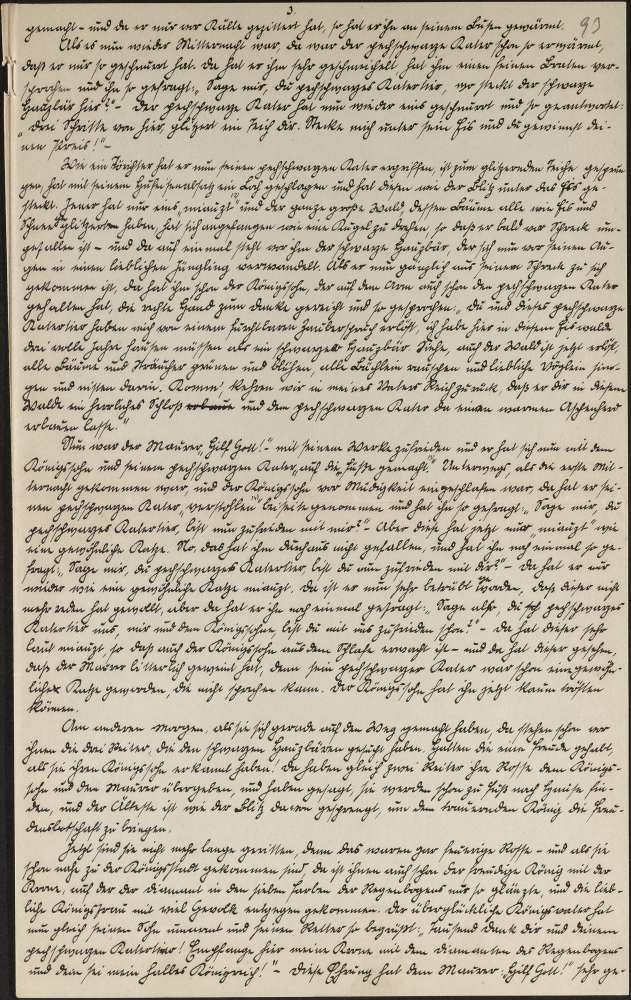 3.
93
gemacht – und da er nur vor Kälte gezittert hat, so hat er ihn an seinem Busen gewärmt.
Als es nun wieder Mitternacht war, da war der pechschwarze Kater schon so erwärmt,
daß er nur so geschnurrt hat. Da hat er ihm sehr geschmeichelt, hat ihm einen feinen Braten ver-
sprochen und ihn so gefragt: „Sage mir, du pechschwarzes Katertier, wo steckt der schwarze
Hauzbär hier?" – Der pechschwarze Kater hat nun wieder eins geschnurrt und so geantwortet:
„Drei Schritte von hier, glitzert ein Teich dir. Stecke mich unter sein Eis und du gewinnst dei-
nen Preis!" –
Wie ein Süchter hat er nun seinen pechschwarzen Kater ergriffen, ist zum glitzernden Teiche gesprun-
gen, hat mit seinem Hufeisenabsatz ein Loch geschlagen und hat diesen wie der Blitz unter das Eis ge-
steckt. Jener hat nur eins „miauzt" und der ganze große Wald, dessen Bäume alle wie Eis und
Schnee geglitzert haben, hat sich angefangen wie eine Kugel zu drehen, so daß er bald vor Schreck um-
gefallen ist – und da auf einmal steht vor ihm der schwarze Hauzbär, der sich nun vor seinen Au-
gen in einen lieblichen Jüngling verwandelt. Als er nun gänzlich aus seinem Schreck zu sich
gekommen ist, da hat ihm schon der Königssohn, der auf dem Arm auch schon den pechschwarzen Kater
gehalten hat, die rechte Hand zum Danke gereicht und so gesprochen: „Du und dieses pechschwarze
Katertier haben mich von einem furchtbaren Zauberspruch erlöst, ich habe hier in diesem Eiswalde
drei volle Jahre hausen müssen als ein schwarzer Hauzbär. Siehe, auch der Wald ist jetzt erlöst,
alle Bäume und Sträucher grünen und blühen, alle Bächlein rauschen und liebliche Vöglein sin-
gen und nisten darin. Komm, kehren wir in meines Vaters Reich zurück, daß er dir in diesem
Walde ein herrliches Schloß erbaue und dem pechschwarzen Kater da einen warmen Aschenherd
erbauen lasse."
Nun war der Maurer „Hilf Gott!" mit seinem Werke zufrieden und er hat sich nun mit dem
Königssohn und seinem pechschwarzen Kater „auf die Füße gemacht." Unterwegs, als die erste Mit-
ternacht gekommen war, und der Königssohn vor Müdigkeit eingeschlafen war, da hat er sei-
nen pechschwarzen Kater „verstohlen" beiseite genommen und hat ihn so gefragt: „Sage mir, du
pechschwarzes Katertier, bist nun zufrieden mit mir?" Aber dieser hat jetzt nur „miauzt" wie
eine gewöhnliche Katze. No, das hat ihm durchaus nicht gefallen, und hat ihn noch einmal so ge-
fragt: „Sage mir, du pechschwarzes Katertier, bist du nun zufrieden mit dir?" – Da hat er nur
wieder wie eine gewöhnliche Katze miauzt. Da ist er nun sehr betrübt worden, daß dieser nicht
mehr reden hat gewollt, aber da hat er ihn noch einmal gefragt: „Sage also, du pechschwarzes
Katertier uns, mir und dem Königssohne, bist du mit uns zufrieden schon?" – Da hat dieser sehr
laut miauzt, so daß auch der Königssohn aus dem Schlafe erwacht ist – und da hat dieser gesehen,
daß der Maurer bitterlich geweint hat, denn sein pechschwarzer Kater war schon eine gewöhn-
liche Katze geworden, die nicht sprechen kann. Der Königssohn hat ihn jetzt kaum trösten
können.
Am anderen Morgen, als sie sich gerade auf den Weg gemacht haben, da stehen schon vor
ihnen die drei Reiter, die den schwarzen Hauzbären gesucht haben. Hatten die eine Freude gehabt,
als sie ihren Königssohn erkannt haben! Da haben gleich zwei Reiter ihre Rosse dem Königs-
sohn und dem Maurer übergeben, und haben gesagt, sie werden schon zu Fuß nach Hause fin-
den, und der Älteste ist wie der Blitz davon gesprengt, um dem trauernden König die Freu-
densbotschaft zu bringen.
Jetzt sind sie nicht mehr lange geritten, denn das waren gar feurige Rosse – und als sie
schon nahe zu der Königsstadt gekommen sind, da ist ihnen auch schon der freudige König mit der
Krone, auf der der Diamant in den sieben Farben der Regenbogens nur so glänzte, und die lieb-
liche Königsfrau mit viel Gevolk entgegen gekommen. Der überglückliche Königsvater hat
nun gleich seinen Sohn umarmt und seinen Retter so begrüßt: „Tausend Dank dir und deinem
pechschwarzen Katertier! Empfange hier meine Krone mit dem Diamanten des Regenbogens
und dein sei mein halbes Königreich!" – Diese Ehrung hat dem Maurer „Hilf Gott!" sehr ge-